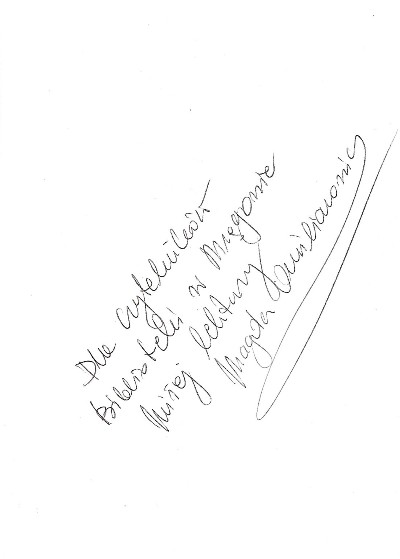 Dla czytelników
Biblioteki w Mrągowie
miłej lektury
Magda Omilianowicz